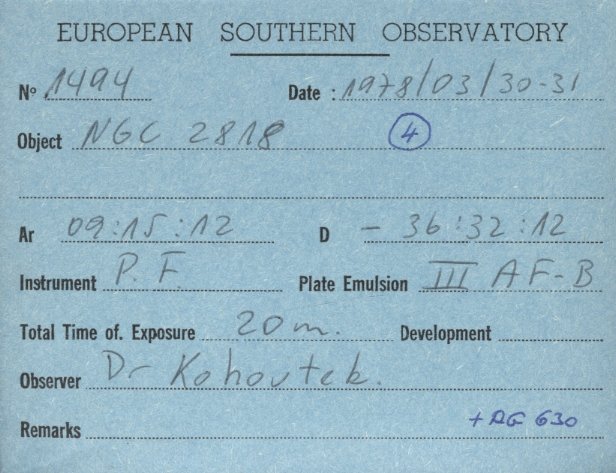 EUROPEAN SOUTHERN OBSERVATORY
Nº 1494 Date : 1978/03/30-31
Object NGC 2818 4
Ar 09:15:12 D - 36:32:12
Instrument P. F. Plate Emulsion III AF-B
Total Time of. Exposure 20 m. Development
Observer Dr Kohoutek.
Remarks + RG 630